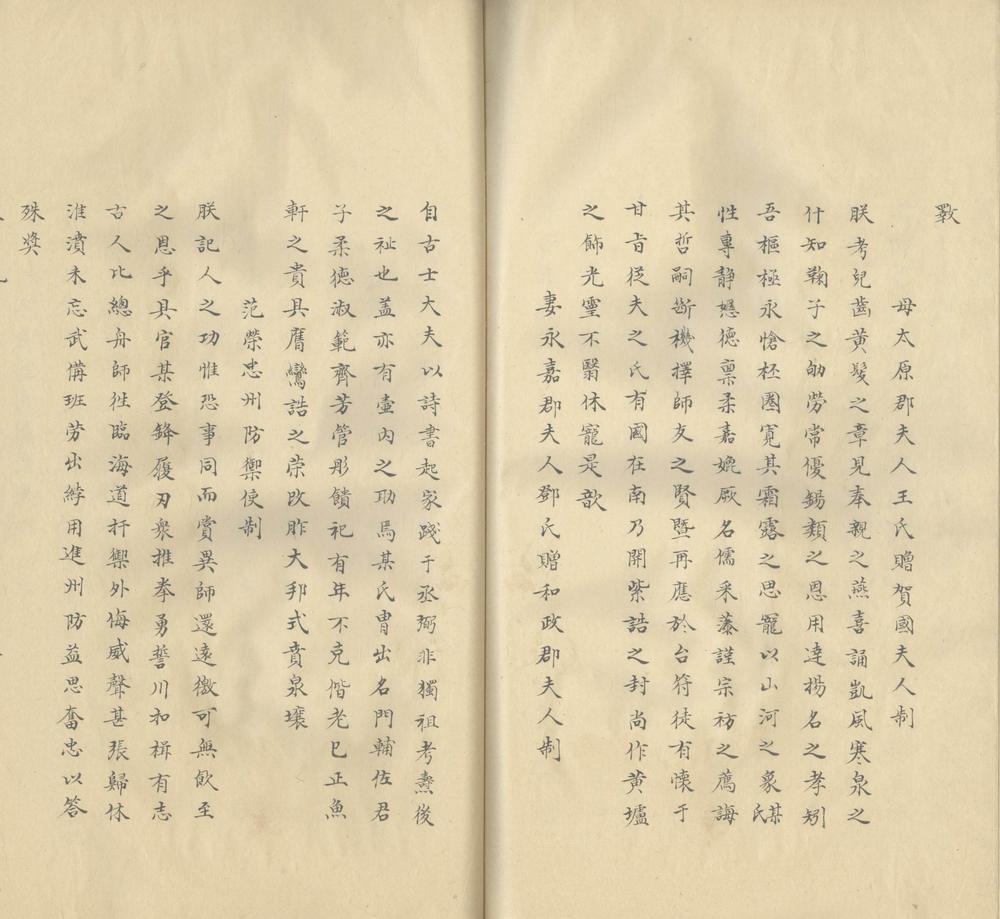 斁
母太原郡夫人王氏贈賀國夫人制
朕考兒齒黄髮之章見奉親之燕喜誦凱風寒泉之
什知鞠子之劬勞常優錫類之恩用達揚名之孝矧
吾樞極永愴柸圏寛其霜露之思寵以山河之象某氏
性專静懿德稟柔嘉媲厥名儒采藻謹宗祊之薦誨
其哲嗣斷機擇師友之賢曁再應於台符徒有懷于
甘旨從夫之氏有國在南乃開紫誥之封尚作黄壚
之飾光靈不翳休寵是歆
妻永嘉郡夫人鄧氏贈和政郡夫人制
自古士大夫以詩書起家踐于丞弼非獨祖考燾後
之祉也葢亦有壼内之助焉某氏胄出名門輔佐君
子柔德淑範齊芳管彤饋祀有年不克偕老已正魚
軒之貴具膺鸞誥之荣改胙大邦式賁泉壤
范榮忠州防禦使制
朕記人之功惟恐事同而賞異師還逺徼可無飲至
之恩乎具官某登鋒履刃衆推拳勇誓川和楫有志
古人比總舟師徃臨海道扞禦外侮威聲甚張歸休
淮濆未忘武備班劳出綍用進州防益思奮忠以答
殊奬